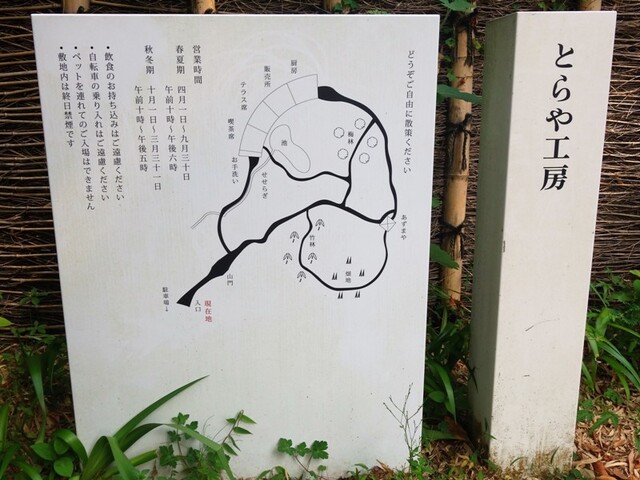 とらや工房
どうぞご自由に散策ください
厨房
販売所
テラス席
喫茶席
お手洗い
せせらぎ
池
梅林
あずまや
竹林
山門
現在地
入口
駐車場→
営業時間
春夏期 四月一日～九月三十日
午前十時～午後六時
秋冬期 十月一日～三月三十一日
午前十時～午後五時
・飲食のお持ち込みはご遠慮ください
・自転車の乗り入れはご遠慮ください
・ペットを連れてのご入場はできません
・敷地内は終日禁煙です